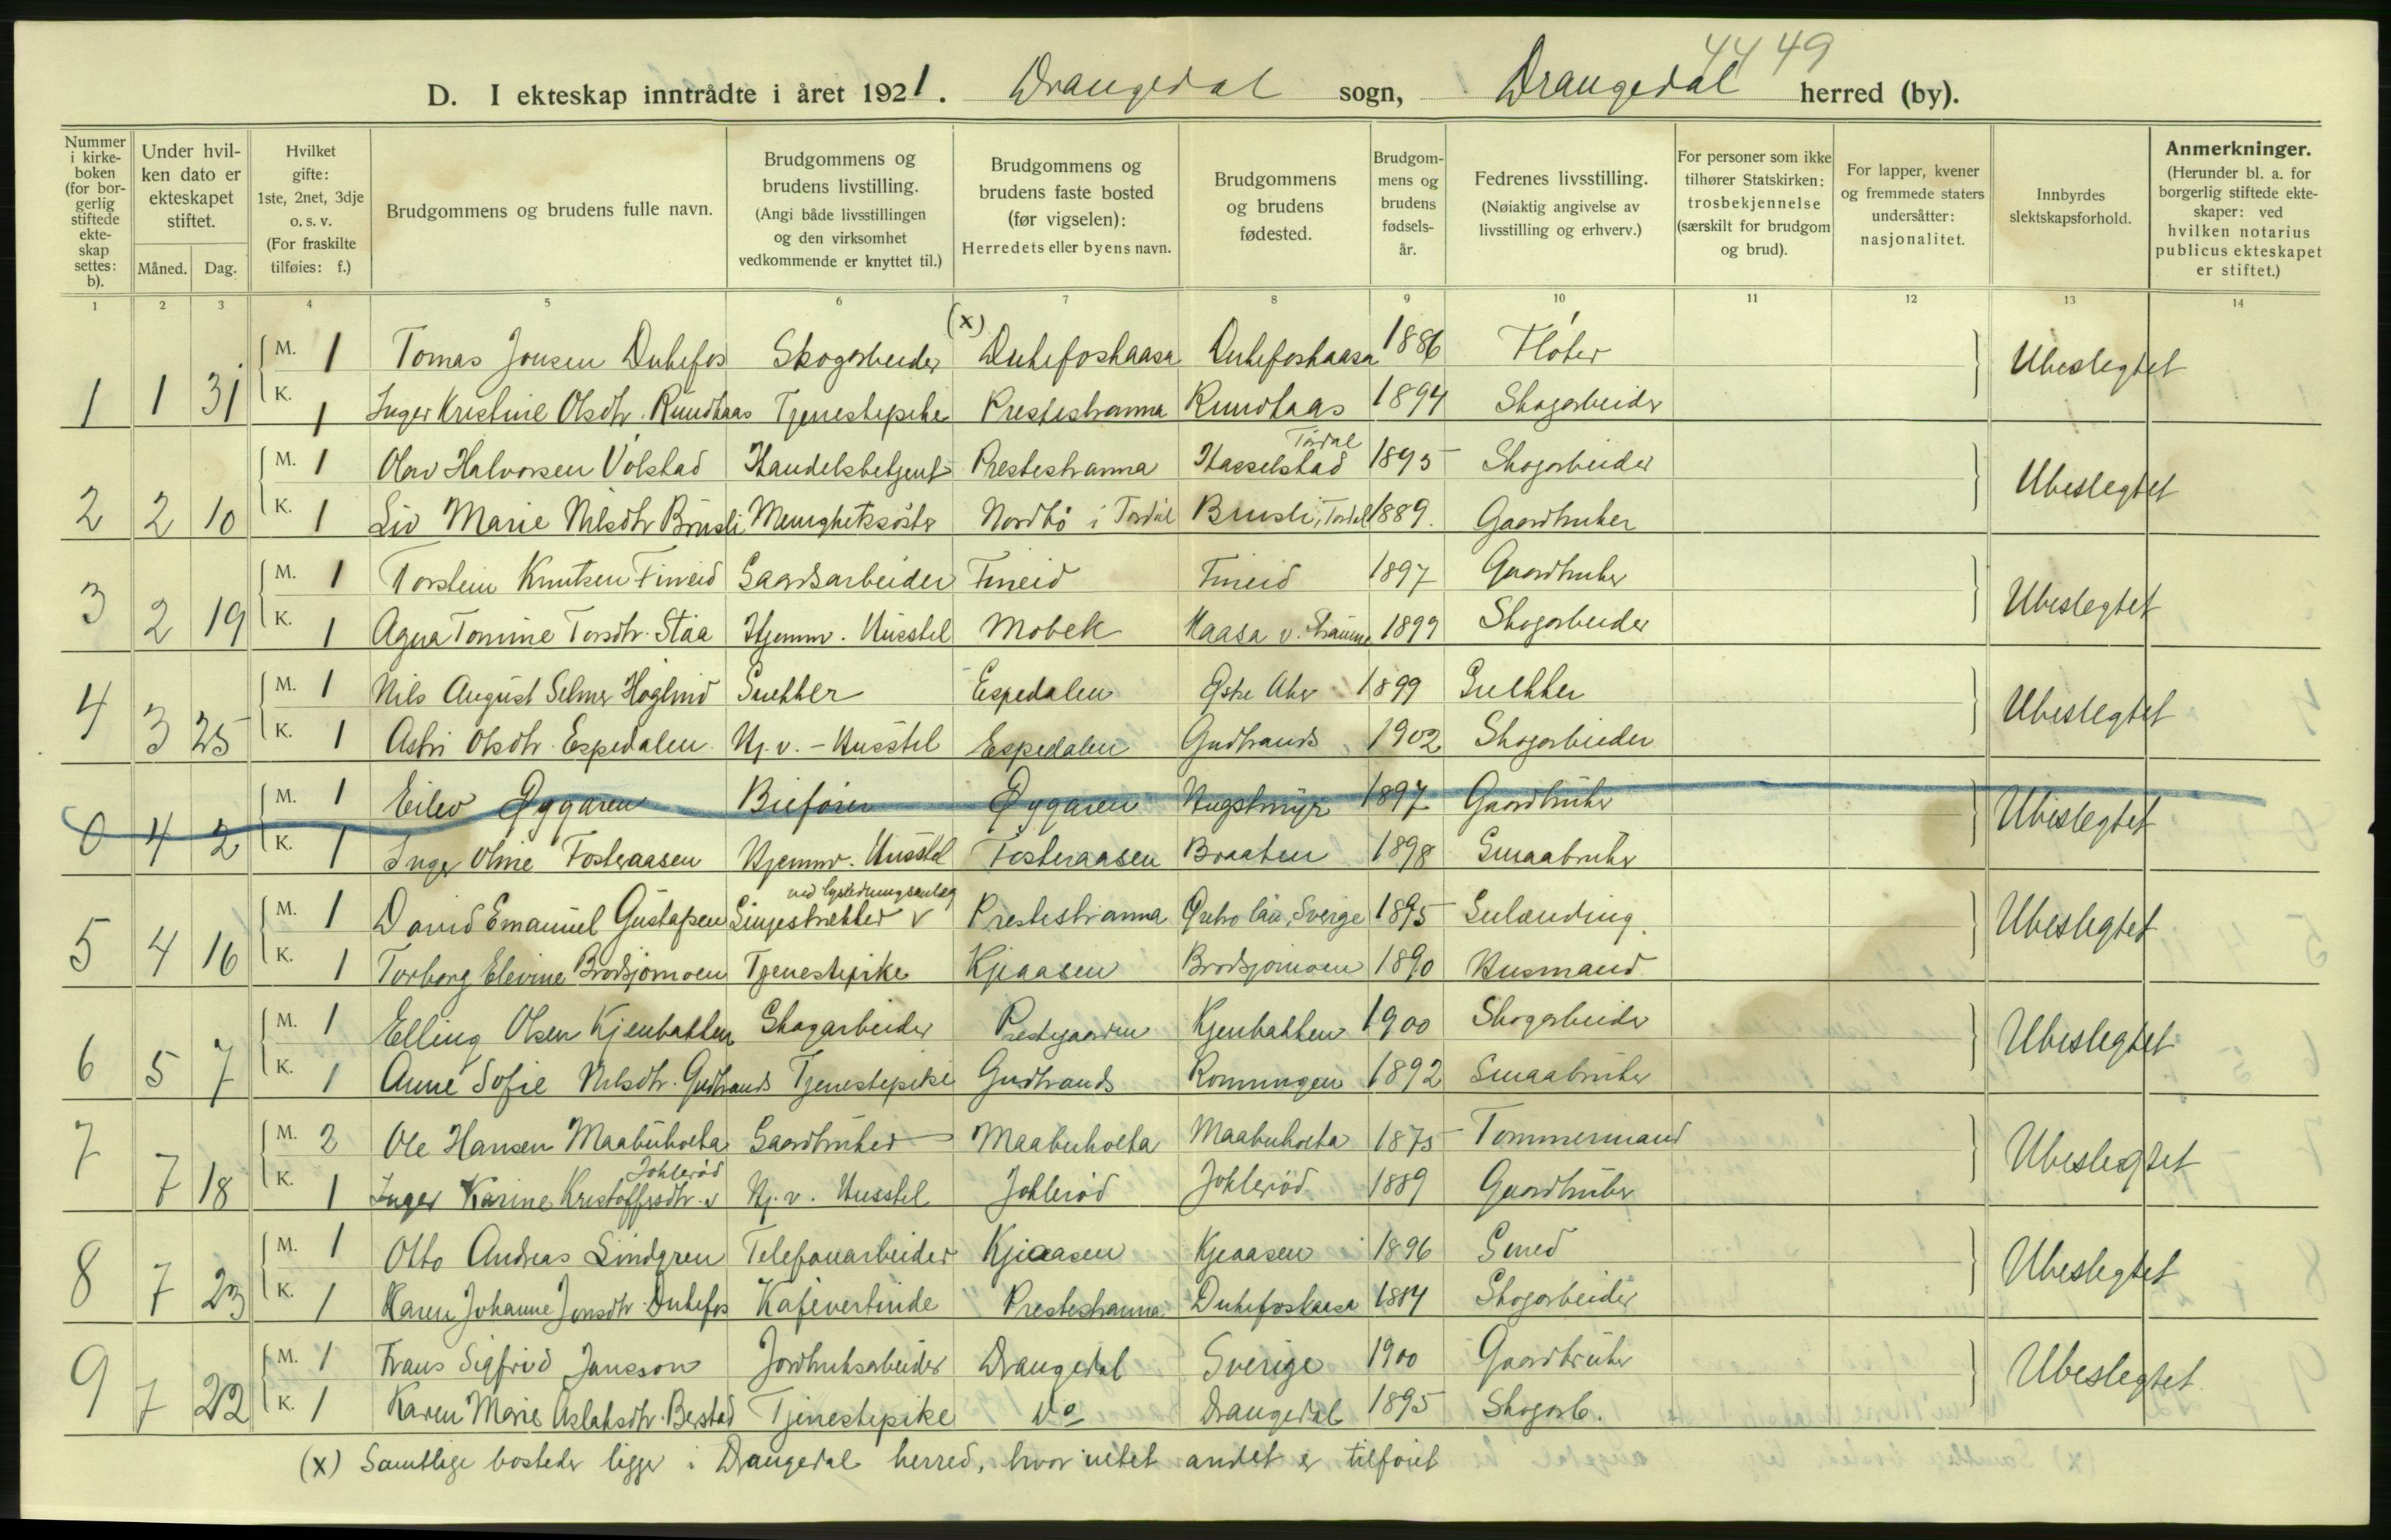 4449
D. I ekteskap inntrådte i året 1921. Drangedal sogn, Drangedal herred (by).
Nummer i kirke- boken (for bor- gerlig stiftede ekte- skap settes: b).
Under hvil- ken dato er ekteskapet stiftet.
Måned. Dag.
Hvilket gifte: 1ste, 2net, 3dje o. s. v. (For fraskilte tilføies: f.)
Brudgommens og brudens fulle navn.
Brudgommens og brudens livstilling. (Angi både livsstillingen og den virksomhet vedkommende er knyttet til.)
Brudgommens og brudens faste bosted (før vigselen): Herredets eller byens navn.
Brudgommens og brudens fødested.
Brudgom- mens og brudens fødsels- år.
Fedrenes livsstilling. (Nøiaktig angivelse av livsstilling og erhverv.)
For personer som ikke tilhører Statskirken: trosbekjennelse (særskilt for brudgom og brud).
For lapper, kvener og fremmede staters undersåtter: nasjonalitet.
Innbyrdes slektskapsforhold.
Anmerkninger. (Herunder bl. a. for borgerlig stiftede ekte- skaper: ved hvilken notarius publicus ekteskapet er stiftet.)
1 2 3 4 5 6 7 8 9 10 11 12 13 14
(x)
M. 1 Tomas Jonsen Dukefos Skogarbeider Dukefoskaasa Dukefoskaasa 1886 Fløter Ubeslegtet
1 1 31 K. 1 Inger Kristine Olsdtr. Rundkaas Tjenestepike Prestestranna Rundkaas 1894 Skogarbeider
M. 1 Olav Halvorsen Volstad Handelsbetjent Prestestranna Hasselstad Tørdal 1895 Skogarbeider Ubeslegtet
2 2 10 K. 1 Liv Marie Nilsdtr Brusli Menighetssøster Nordbø i Tørdal Brusli, Tørdal 1889. Gaardbruker
M. 1 Torstein Knutsen Fineid Gaardsarbeider Fineid Fineid 1897 Gaardbruker Ubeslegtet
3 2 19 K. 1 Agna Tomine Torsdtr. Staa Hjemmv. Husstel Mobek Kaasa v. 1899 Skogarbeider
M. 1 Nils August Selmer Høglind Snekker Espedalen Østre Aker 1899 Snekker Ubeslegtet
4 3 25 K. 1 Astri Olsdtr. Espedalen Hj. v. - Husstel Espedalen Gudbrands 1902 Skogarbeider
M. 1 Eilev Øygaren Bilfører Øygaren Hugstmyr 1897 Gaardbruker Ubeslegtet
0 4 2 K. 1 Inger Oline Fosteraasen Hjemmv. Husstel Fosteraasen Braaten 1898 Smaabruker
ved lysledningsanlæg
M. 1 David Emanuel Gustafsen Linjestrekker v Prestestranna Sverige 1895 Inlænding. Ubeslegtet
5 4 16 K. 1 Torborg Elevine Brødsjømoen Tjenestepike Kjeaasen Brødsjømoen 1890 Husmand
M. 1 Elling Olsen Kjenbakken Skogarbeider Prestegaarden Kjenbakken 1900 Skogarbeider Ubeslegtet
6 5 7 K. 1 Anne Sofie Nilsdtr. Gudbrands Tjenestepike Gudbrands Ronningen 1892 Smaabruker
7 M. 2 Ole Hansen Maabuholta Gaardbruker Maabuholta Maabuholta 1875 Tømmermand Ubeslegtet
7 18 K. 1 Inger Karine Kristoffersdtr. v Joklerød Hj. v. Husstel Joklerød Joklerød 1889 Gaardbruker
M. 1 Otto Andreas Lindgren Telefonarbeider Kjeaasen Kjeaasen 1896 Smed Ubeslegtet
8 7 23 K. 1 Karen Johanne Jonsdtr Dukefos Kafeverdinde Prestestranna Dukefoskaasa 1884 Skogarbeider
M. 1 Frans Sigfrid Jansson Jordbruksarbeider Drangedal Sverige 1900 Gaardbruker Ubeslegtet
9 7 22 K. 1 Karen Marie Aslaksdtr. Berstad Tjenestepike do Drangedal 1895 Skogarb.
(x) Samtlige bosteder ligger i Drangedal herred, hvor intet andet er tilføiet